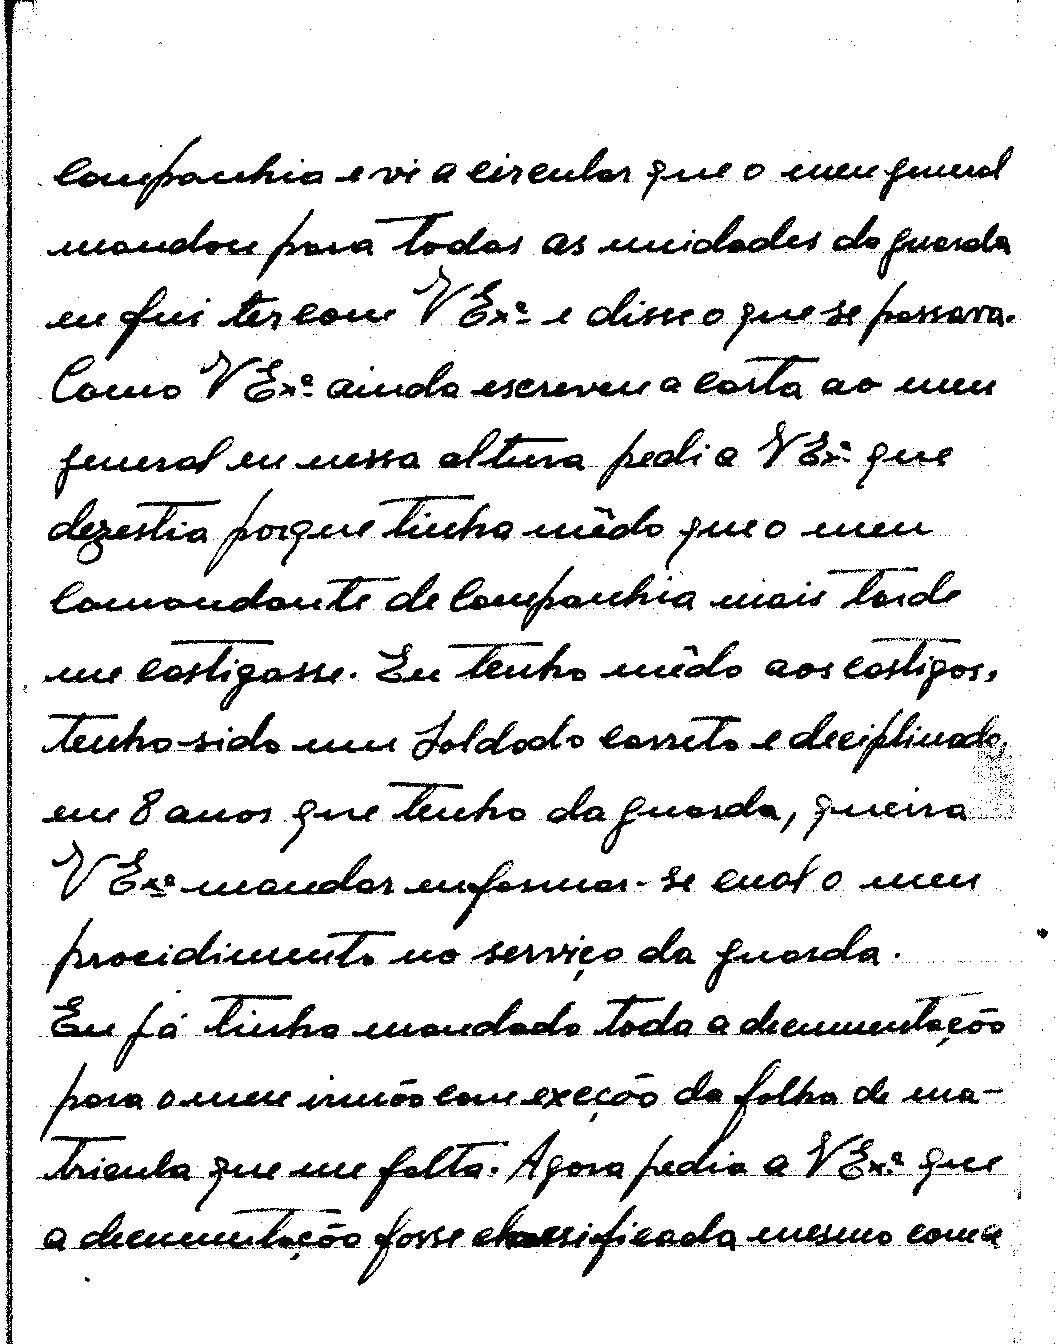 companhia e vi a circular que o meu general
mandou para todas as unidades da guarda
eu fui ter com V Exª e disse o que se passava.
Como V Exª ainda escreveu a carta ao meu
general eu nessa altura pedi a V Exª que
dezestia porque tinha mêdo que o meu
Comandante de Companhia mais tarde
me castigasse. Eu tenho mêdo aos castigos,
tenho sido um Soldado correto e deciplinado,
em 8 anos que tenho da guarda, queira
V Exª mandar enformar-se cual o meu
procidimento no serviço da guarda.
Eu já tinha mandado toda a documentação
para o meu irmão com exeção da folha de ma-
tricula que me falta. Agora pedia a V Exª que
a documentação fosse classificada mesmo com a